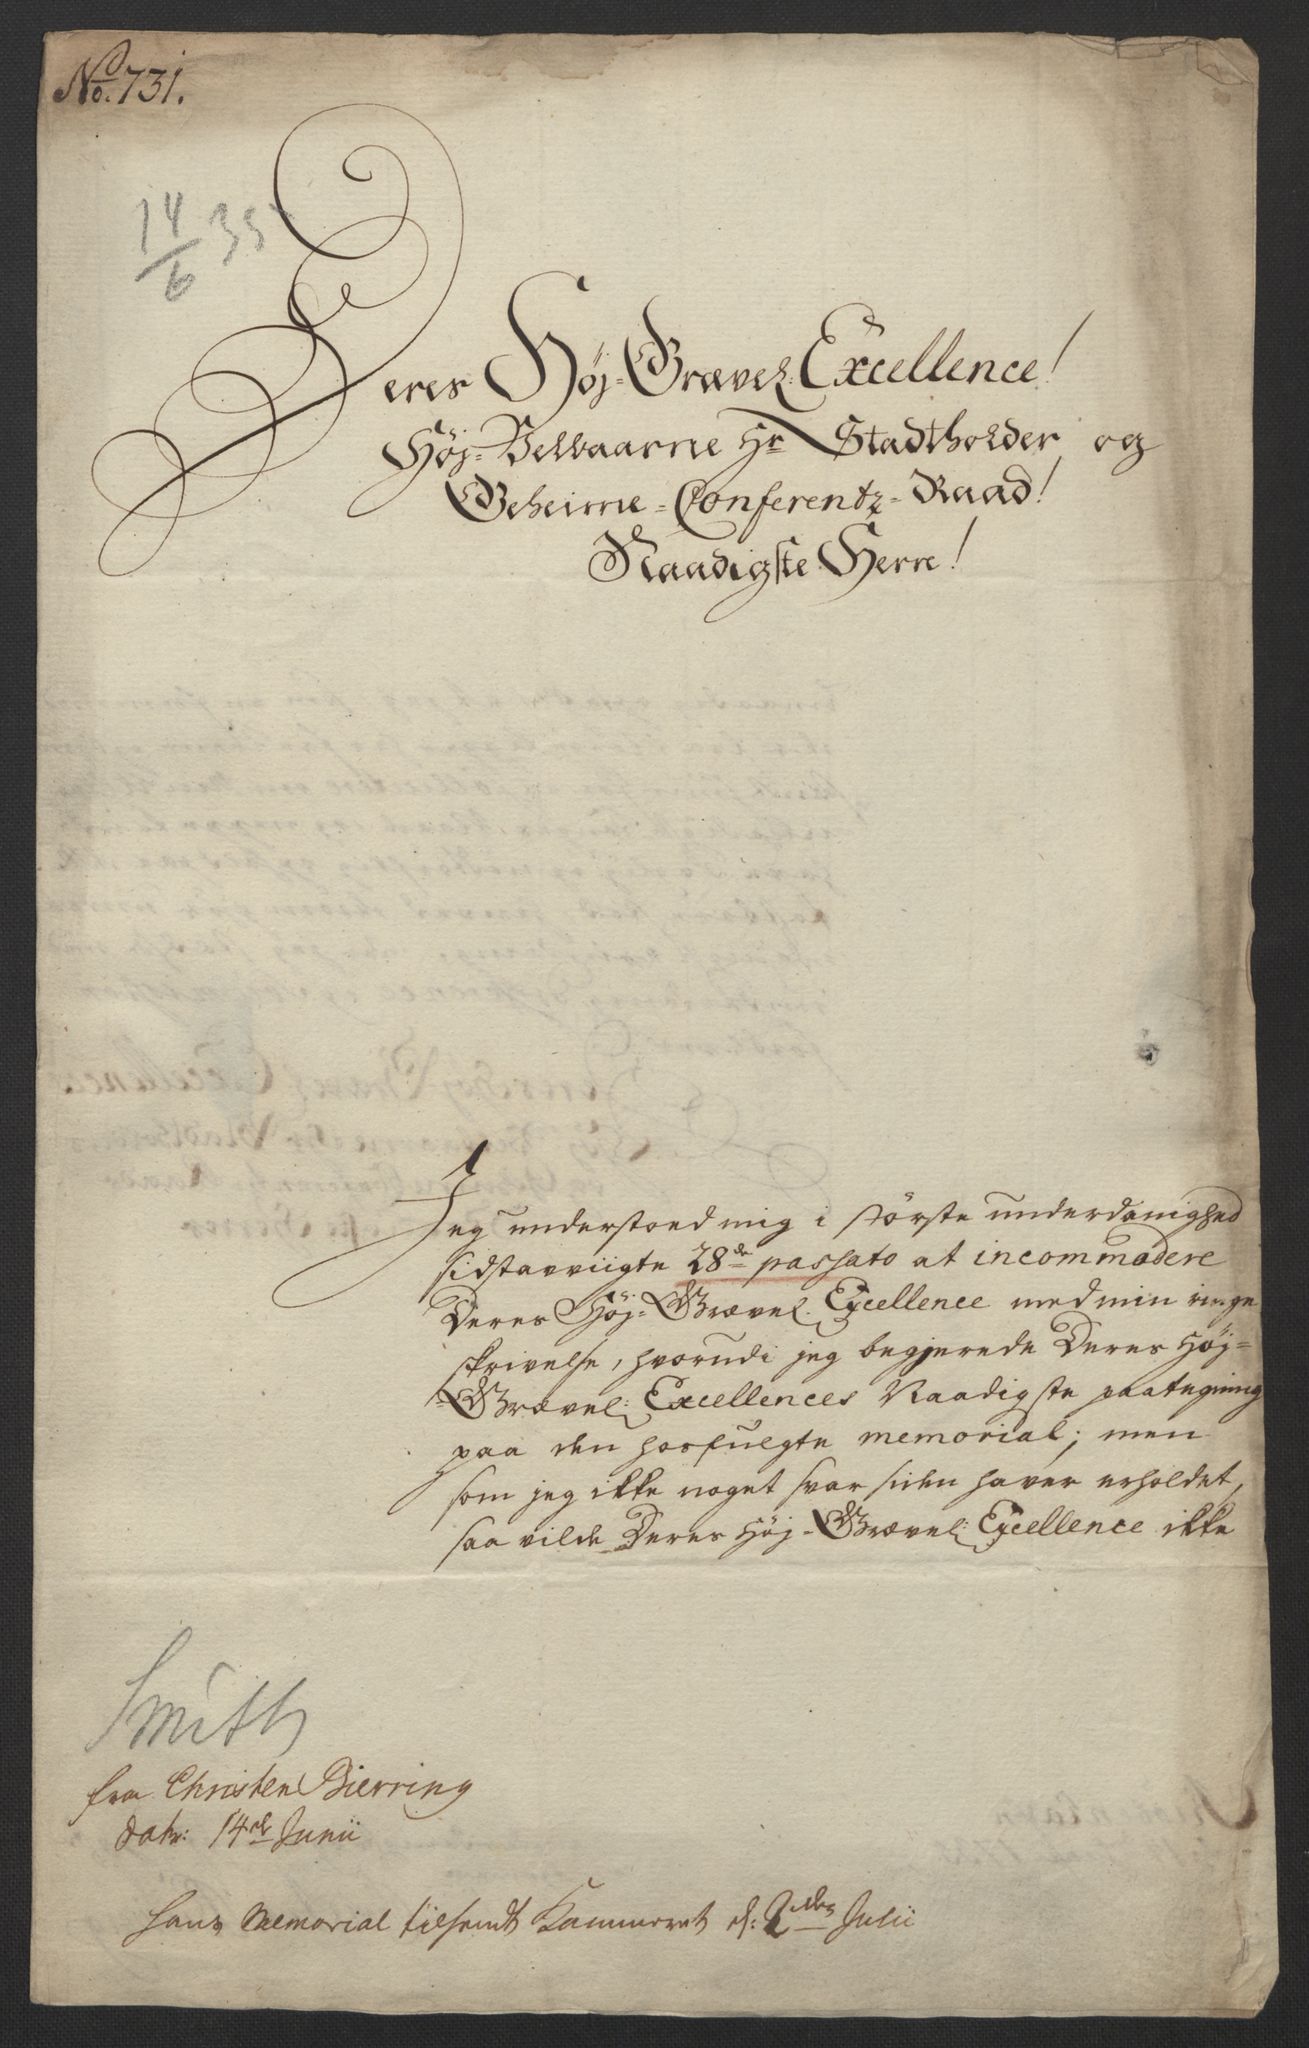 No. 731.
14/6 35
Deres Høj-Grævel: Excellence!
Høj-Velbaarne Hr Stadtholder og
Geheime-Conferentz-Raad!
Naadigste Herre!
Jeg understoed mig i største underdanighed
sidstavviigte 28de passato at incommodere
Deres Høj-Grævel. Excellence med min ringe
skrivelse, hvorudi jeg begjerede Deres Høj-
Grævel: Excellences Naadigste paategning
paa den hosfulgte memorial; men
som jeg ikke noget svar siden haver erholdet,
saa vilde Deres Høj-Grævel: Excellence ikke
Smith
fra Christen Bierring
dat: 14de Junii
hans Memorial tilsendt Kammeret d: 2den Julii